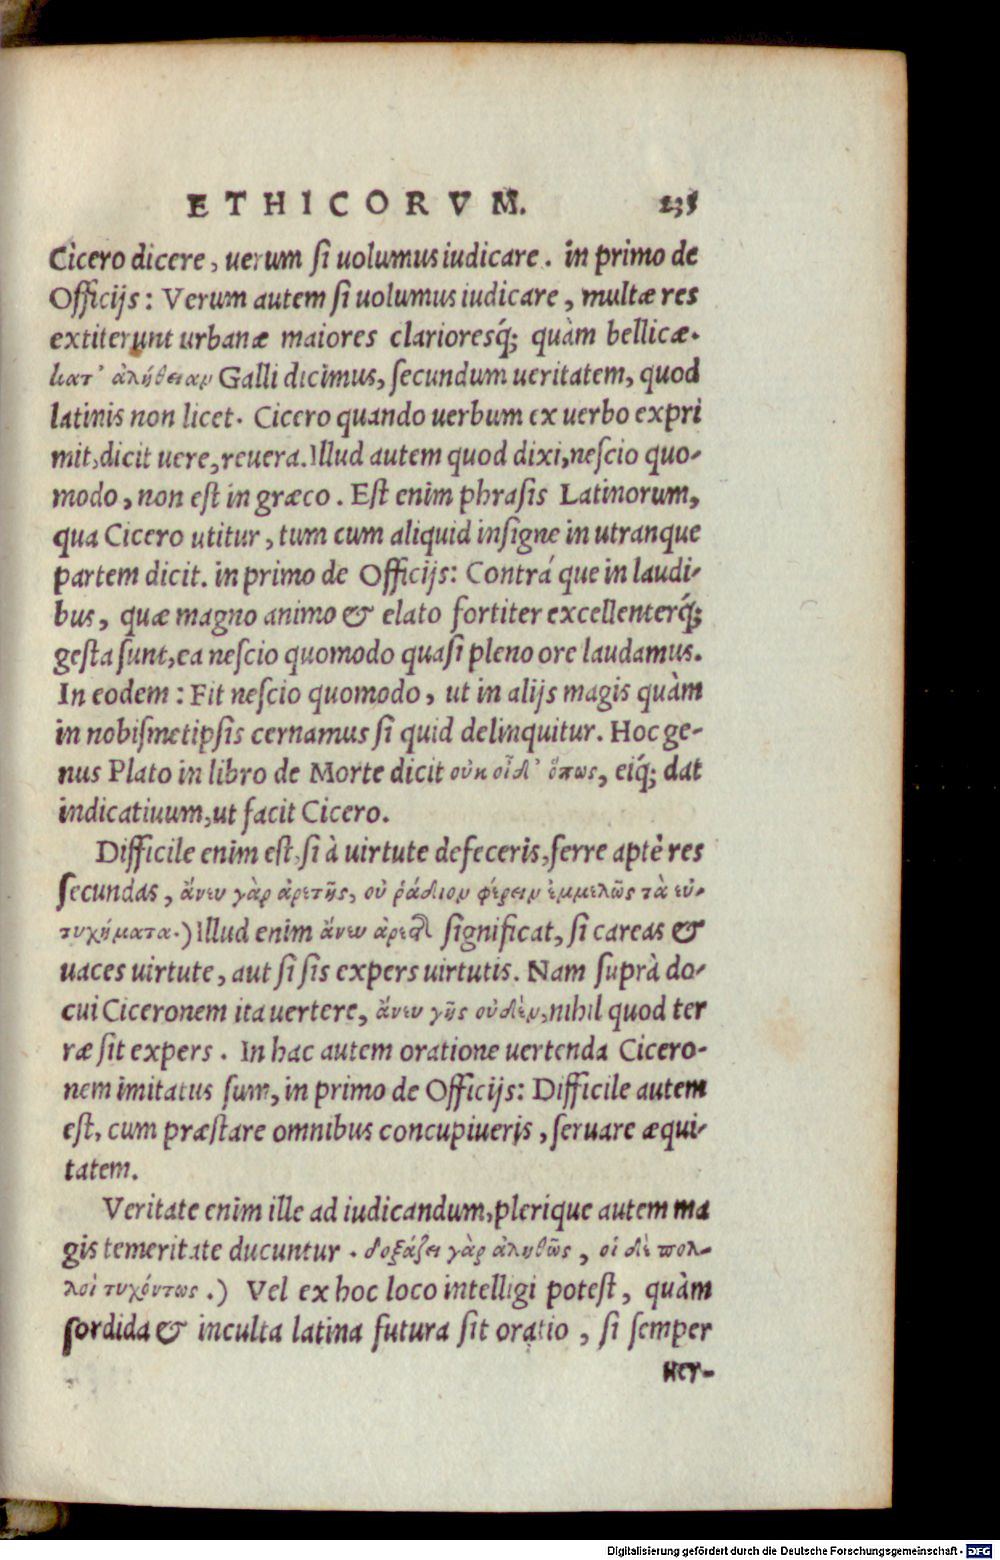 ETHICORVM. 235
Cicero dicere, uerum si uolumus iudicare. in primo de
Officijs: Verum autem si uolumus iudicare, multæ res
extiterunt urbanæ maiores clarioresq́; quàm bellicæ.
κατ' ἀλήθειαν Galli dicimus, secundum ueritatem, quod
latinis non licet. Cicero quando uerbum ex uerbo expri
mit, dicit uere, reuera. Illud autem quod dixi, nescio quo-
modo, non est in græco. Est enim phrasis Latinorum,
qua Cicero utitur, tum cum aliquid insigne in utranque
partem dicit. in primo de Officijs: Contrá que in laudi-
bus, quæ magno animo & elato fortiter excellenterq́;
gesta sunt, ea nescio quomodo quasi pleno ore laudamus.
In eodem: Fit nescio quomodo, ut in alijs magis quàm
in nobismetipsis cernamus si quid delinquitur. Hoc ge-
nus Plato in libro de Morte dicit οὐκ οἶδ' ὅπως, eiq́; dat
indicatiuum, ut facit Cicero.
Difficile enim est, si à uirtute defeceris, ferre aptè res
secundas, ἄνευ γὰρ ἀρετῆς, οὐ ῥάδιον φέρειν ἐμμελῶς τὰ εὐ-
τυχήματα.) Illud enim ἄνευ ἀρετῆς significat, si careas &
uaces uirtute, aut si sis expers uirtutis. Nam suprà do-
cui Ciceronem ita uertere, ἄνευ γῆς οὐδὲν, nihil quod ter
ræ sit expers. In hac autem oratione uertenda Cicero-
nem imitatus sum, in primo de Officijs: Difficile autem
est, cum præstare omnibus concupiueris, seruare æqui-
tatem.
Veritate enim ille ad iudicandum, plerique autem ma
gis temeritate ducuntur. δοξάζει γὰρ ἀληθῶς, οἱ δὲ πολ-
λοὶ τυχόντως.) Vel ex hoc loco intelligi potest, quàm
sordida & inculta latina futura sit oratio, si semper
uer-
Digitalisierung gefördert durch die Deutsche Forschungsgemeinschaft - DFG